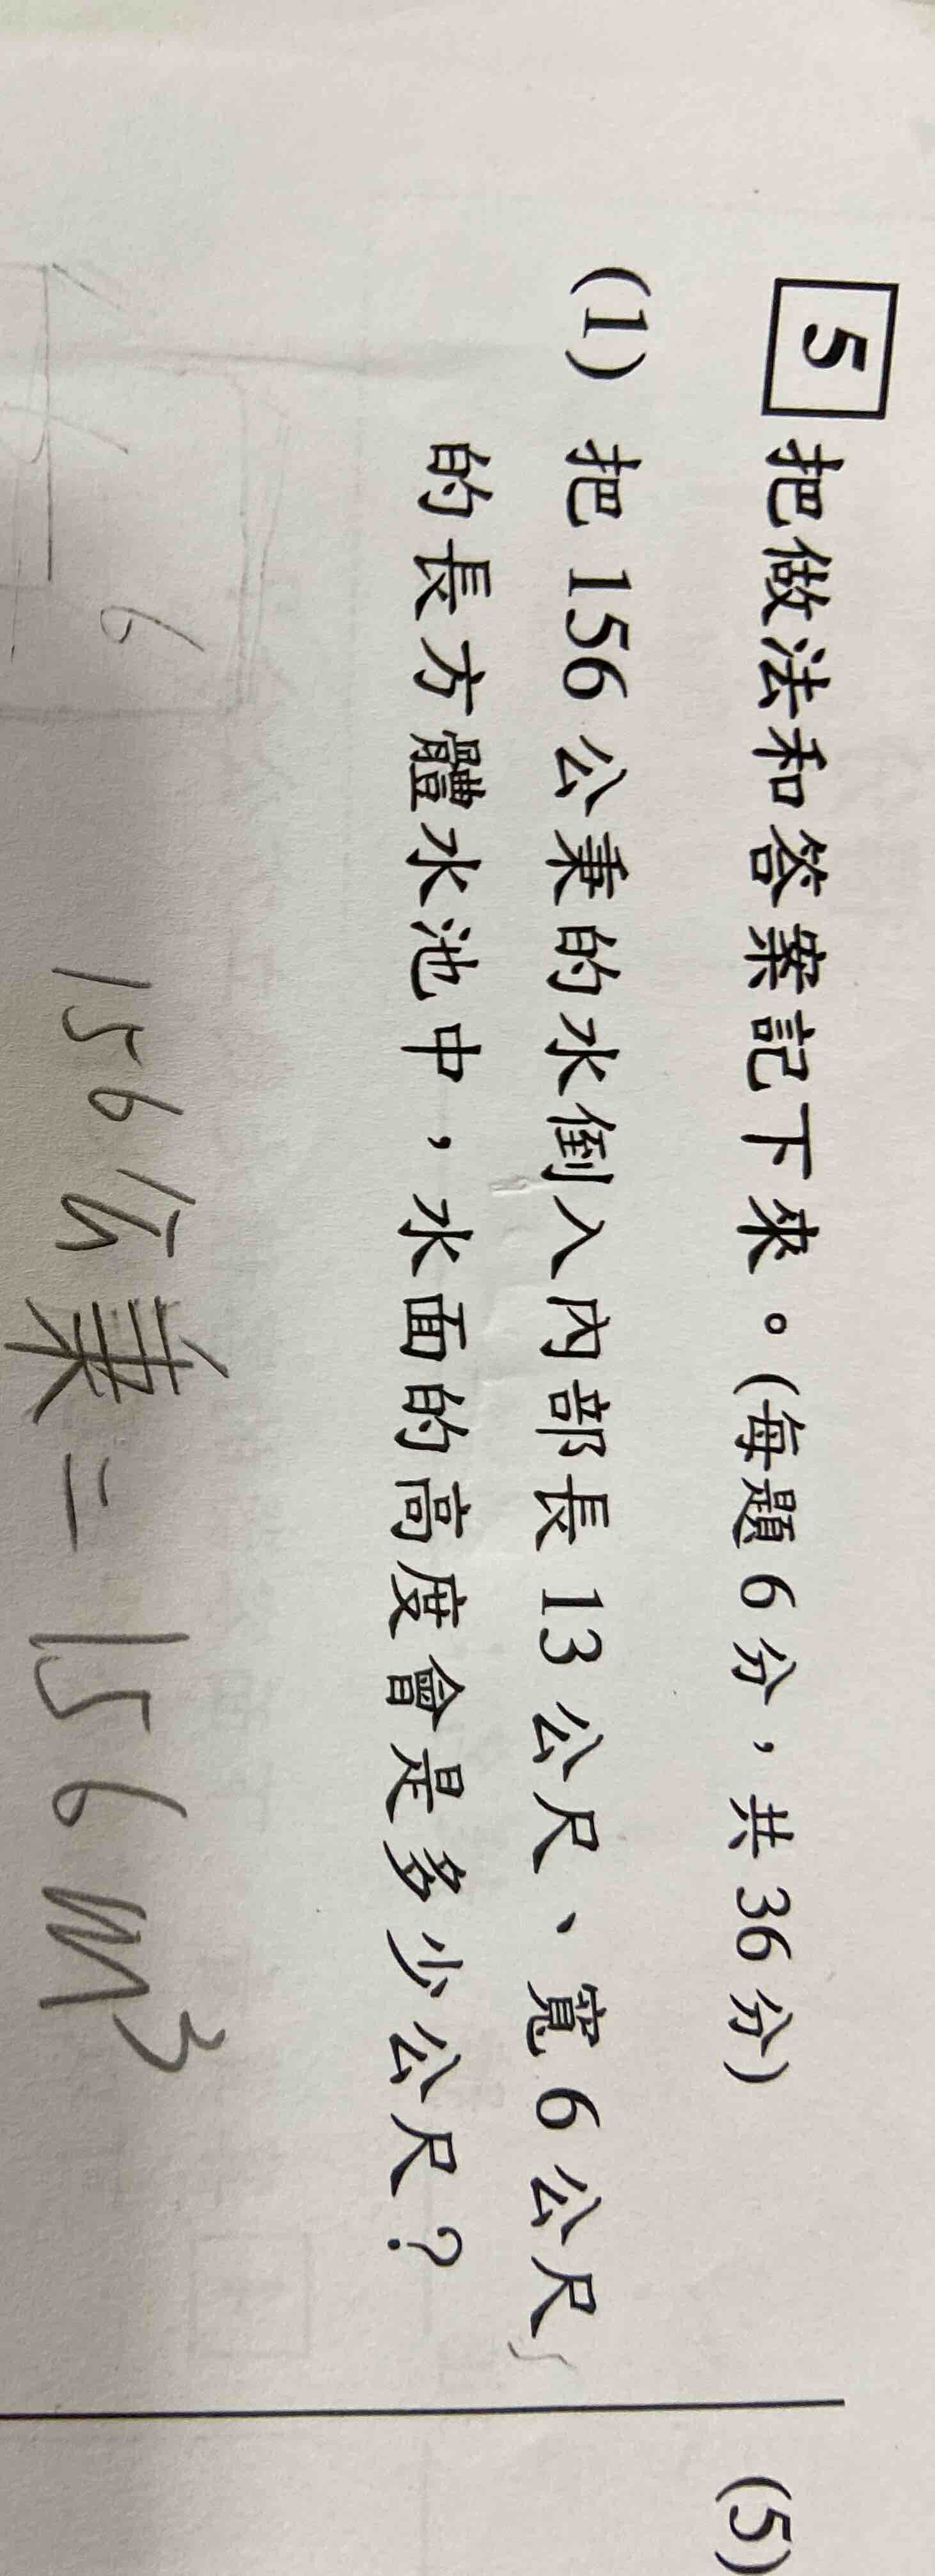 5 把做法和答案記下來。(每題6分，共36分)
(1) 把156公秉的水倒入內部長13公尺、寬6公尺
的長方體水池中，水面的高度會是多少公尺？
6
156公秉=156m³
(5)